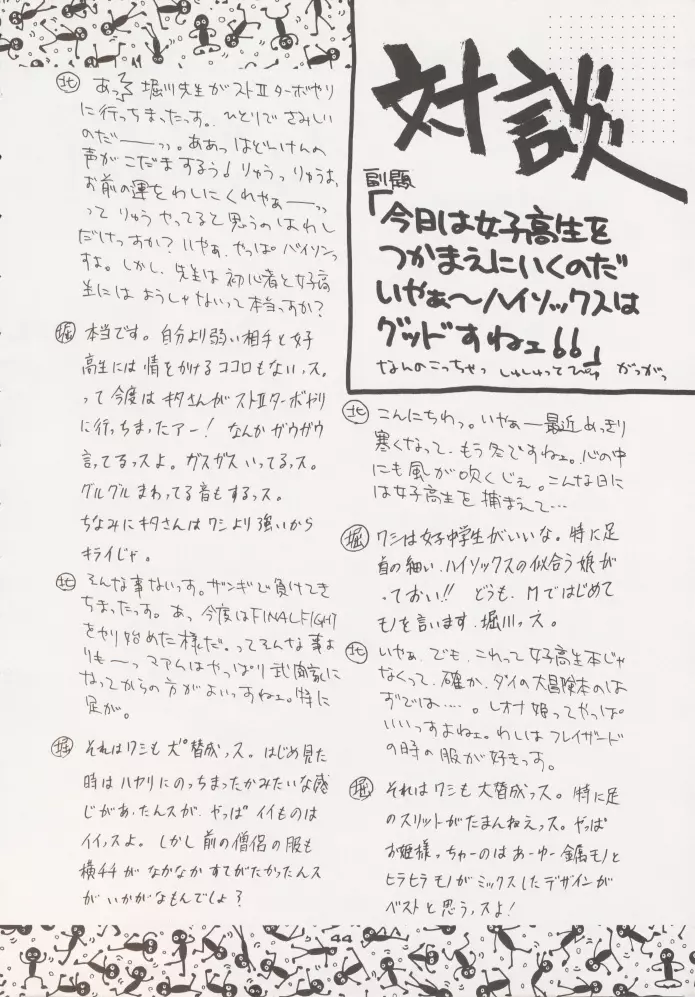 対談
副題
「今日は女子高生を
つかまえにいくのだ
いやぁ〜ハイソックスは
グッドすねェ66」
なんのこっちゃっ しゅしゅってぴゅ がっがっ
北 こんにちわっ。いやぁー最近めっきり
寒くなって、もう冬ですねェ。心の中
にも風が吹くじぇ。こんな日に
は女子高生を捕まえて…
堀 ワシは女子中学生がいいな。特に足
首の細い、ハイソックスの似合う娘が
っておい!! どうも、Mではじめて
モノを言います、堀川ッス。
北 いやぁ、でも、これって女子高生本じゃ
なくって、確か、ダイの大冒険本のは
ずでは…。レオナ姫ってやっぱ
いいっすよねェ。わしはフレイザード
の時の服が好きっす。
堀 それはワシも大賛成ッス。特に足
のスリットがたまんねえッス。やっぱ
お姫様っちゅーのはあーゆー金属モノと
ヒラヒラモノがミックスしたデザインが
ベストと思うッスよ!
北 あっ 堀川先生がストⅡターボやり
に行っちまったっす。ひとりでさみしい
のだーーッッ。ああっはどーけんの
声がこだまするぅ! りゅうっ りゅうよ、
お前の運をわしにくれやぁーーッッ
って りゅうやってると思うのはわし
だけっすか? いやぁ、やっぱバイソンっ
すよ。しかし、先生は初心者と女子高
生にはようしゃないって本当っすか?
堀 本当です。自分より弱い相手と女子
高生には情をかけるココロもないッス。
って今度はキタさんがストⅡターボやり
に行っちまったアー! なんかガウガウ
言ってるッスよ。ガスガスいってるッス。
グルグルまわってる音もするッス。
ちなみにキタさんはワシより強いから
キライじゃ。
北 そんな事ないっす。ザンギで負けてき
ちまったっす。あっ 今度はFINALFIGHT
をやり始めた様だ。ってそんな事よ
りもーっ マァムはやっぱり武闘家に
なってからの方がよいっすねェ。特に
足が。
堀 それはワシも大賛成ッス。はじめ見た
時はハヤリにのっちまったかみたいな感
じがあったんスが、やっぱイイものは
イイッスよ。しかし前の僧侶の服も
横チチがなかなかすてがたかったんス
がいかがなもんでしょ?
44